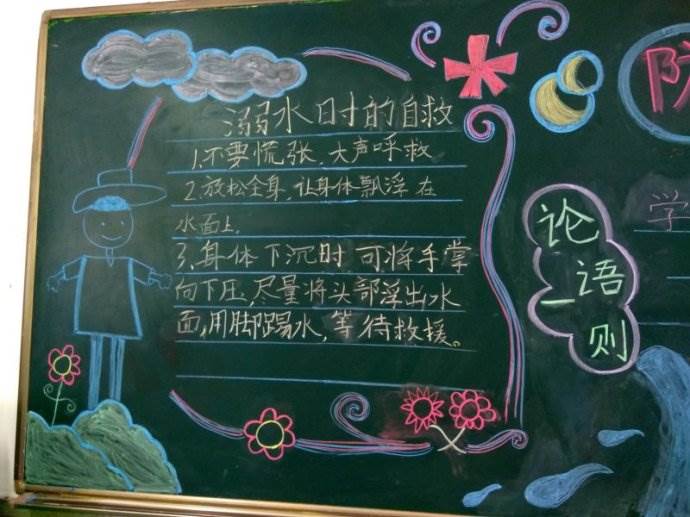 溺水时的自救
1.不要慌张、大声呼救
2.放松全身,让身体飘浮在
水面上.
3.身体下沉时可将手掌
向下压,尽量将头部浮出水
面,用脚踢水,等待救援。
防
论语一则
学